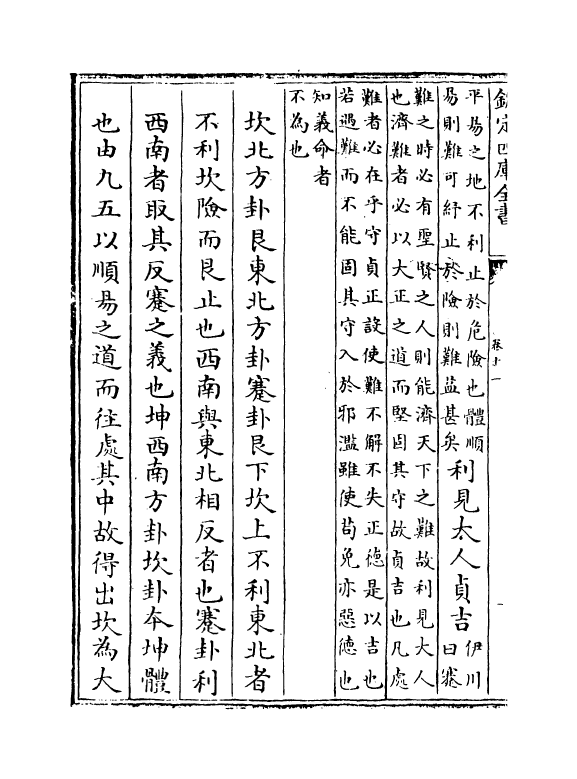 欽定四庫全書
卷十一
平易之地不利止於危險也體順
易則難可紓止於險則難益甚矣
利見大人貞吉
伊川
曰蹇
難之時必有聖賢之人則能濟天下之難故利見大人
也濟難者必以大正之道而堅固其守故貞吉也凡處
難者必在乎守貞正設使難不解不失正德是以吉也
若遇難而不能固其守入於邪濫雖使苟免亦惡德也
知義命者
不為也
坎北方卦艮東北方卦蹇卦艮下坎上不利東北者
不利坎險而艮止也西南與東北相反者也蹇卦利
西南者取其反蹇之義也坤西南方卦坎卦本坤體
也由九五以順易之道而往處其中故得出坎為大